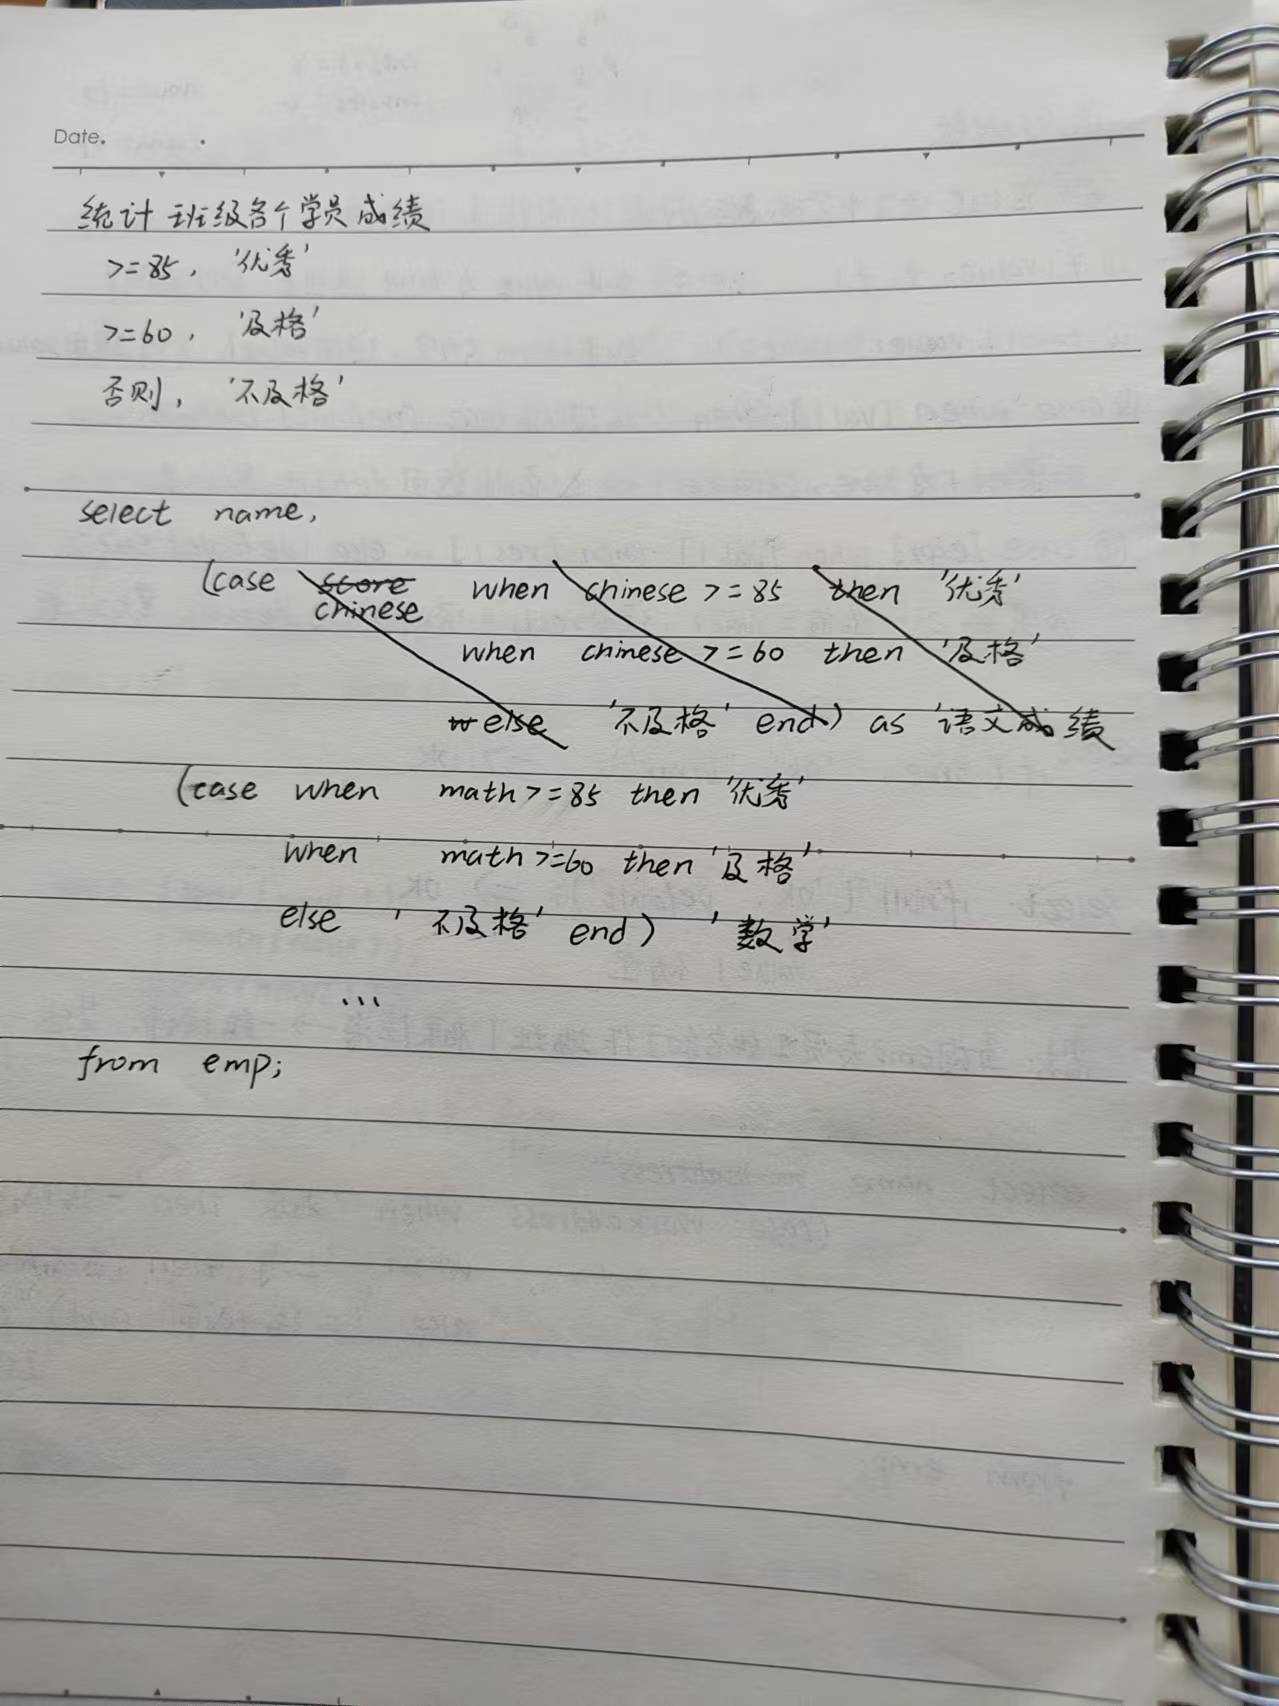 Date.
统计 班级各个学员成绩
>=85, '优秀'
>=60, '及格'
否则, '不及格'
select name,
(case score chinese when chinese >= 85 then '优秀'
when chinese >= 60 then '及格'
else '不及格' end) as '语文成绩
(case when math >= 85 then '优秀'
when math >= 60 then '及格'
else '不及格' end) '数学'
...
from emp;